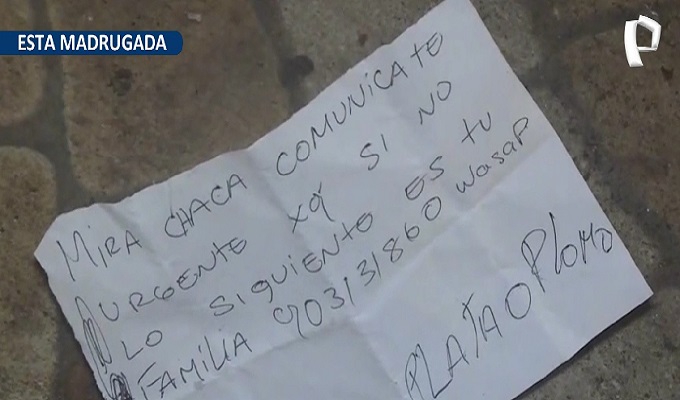 ESTA MADRUGADA
MIRA CHACA COMUNICATE
URGENTE XQ SI NO
LO SIGUIENTE ES TU
FAMILIA 903131860 wasap
PLATA O PLOMO